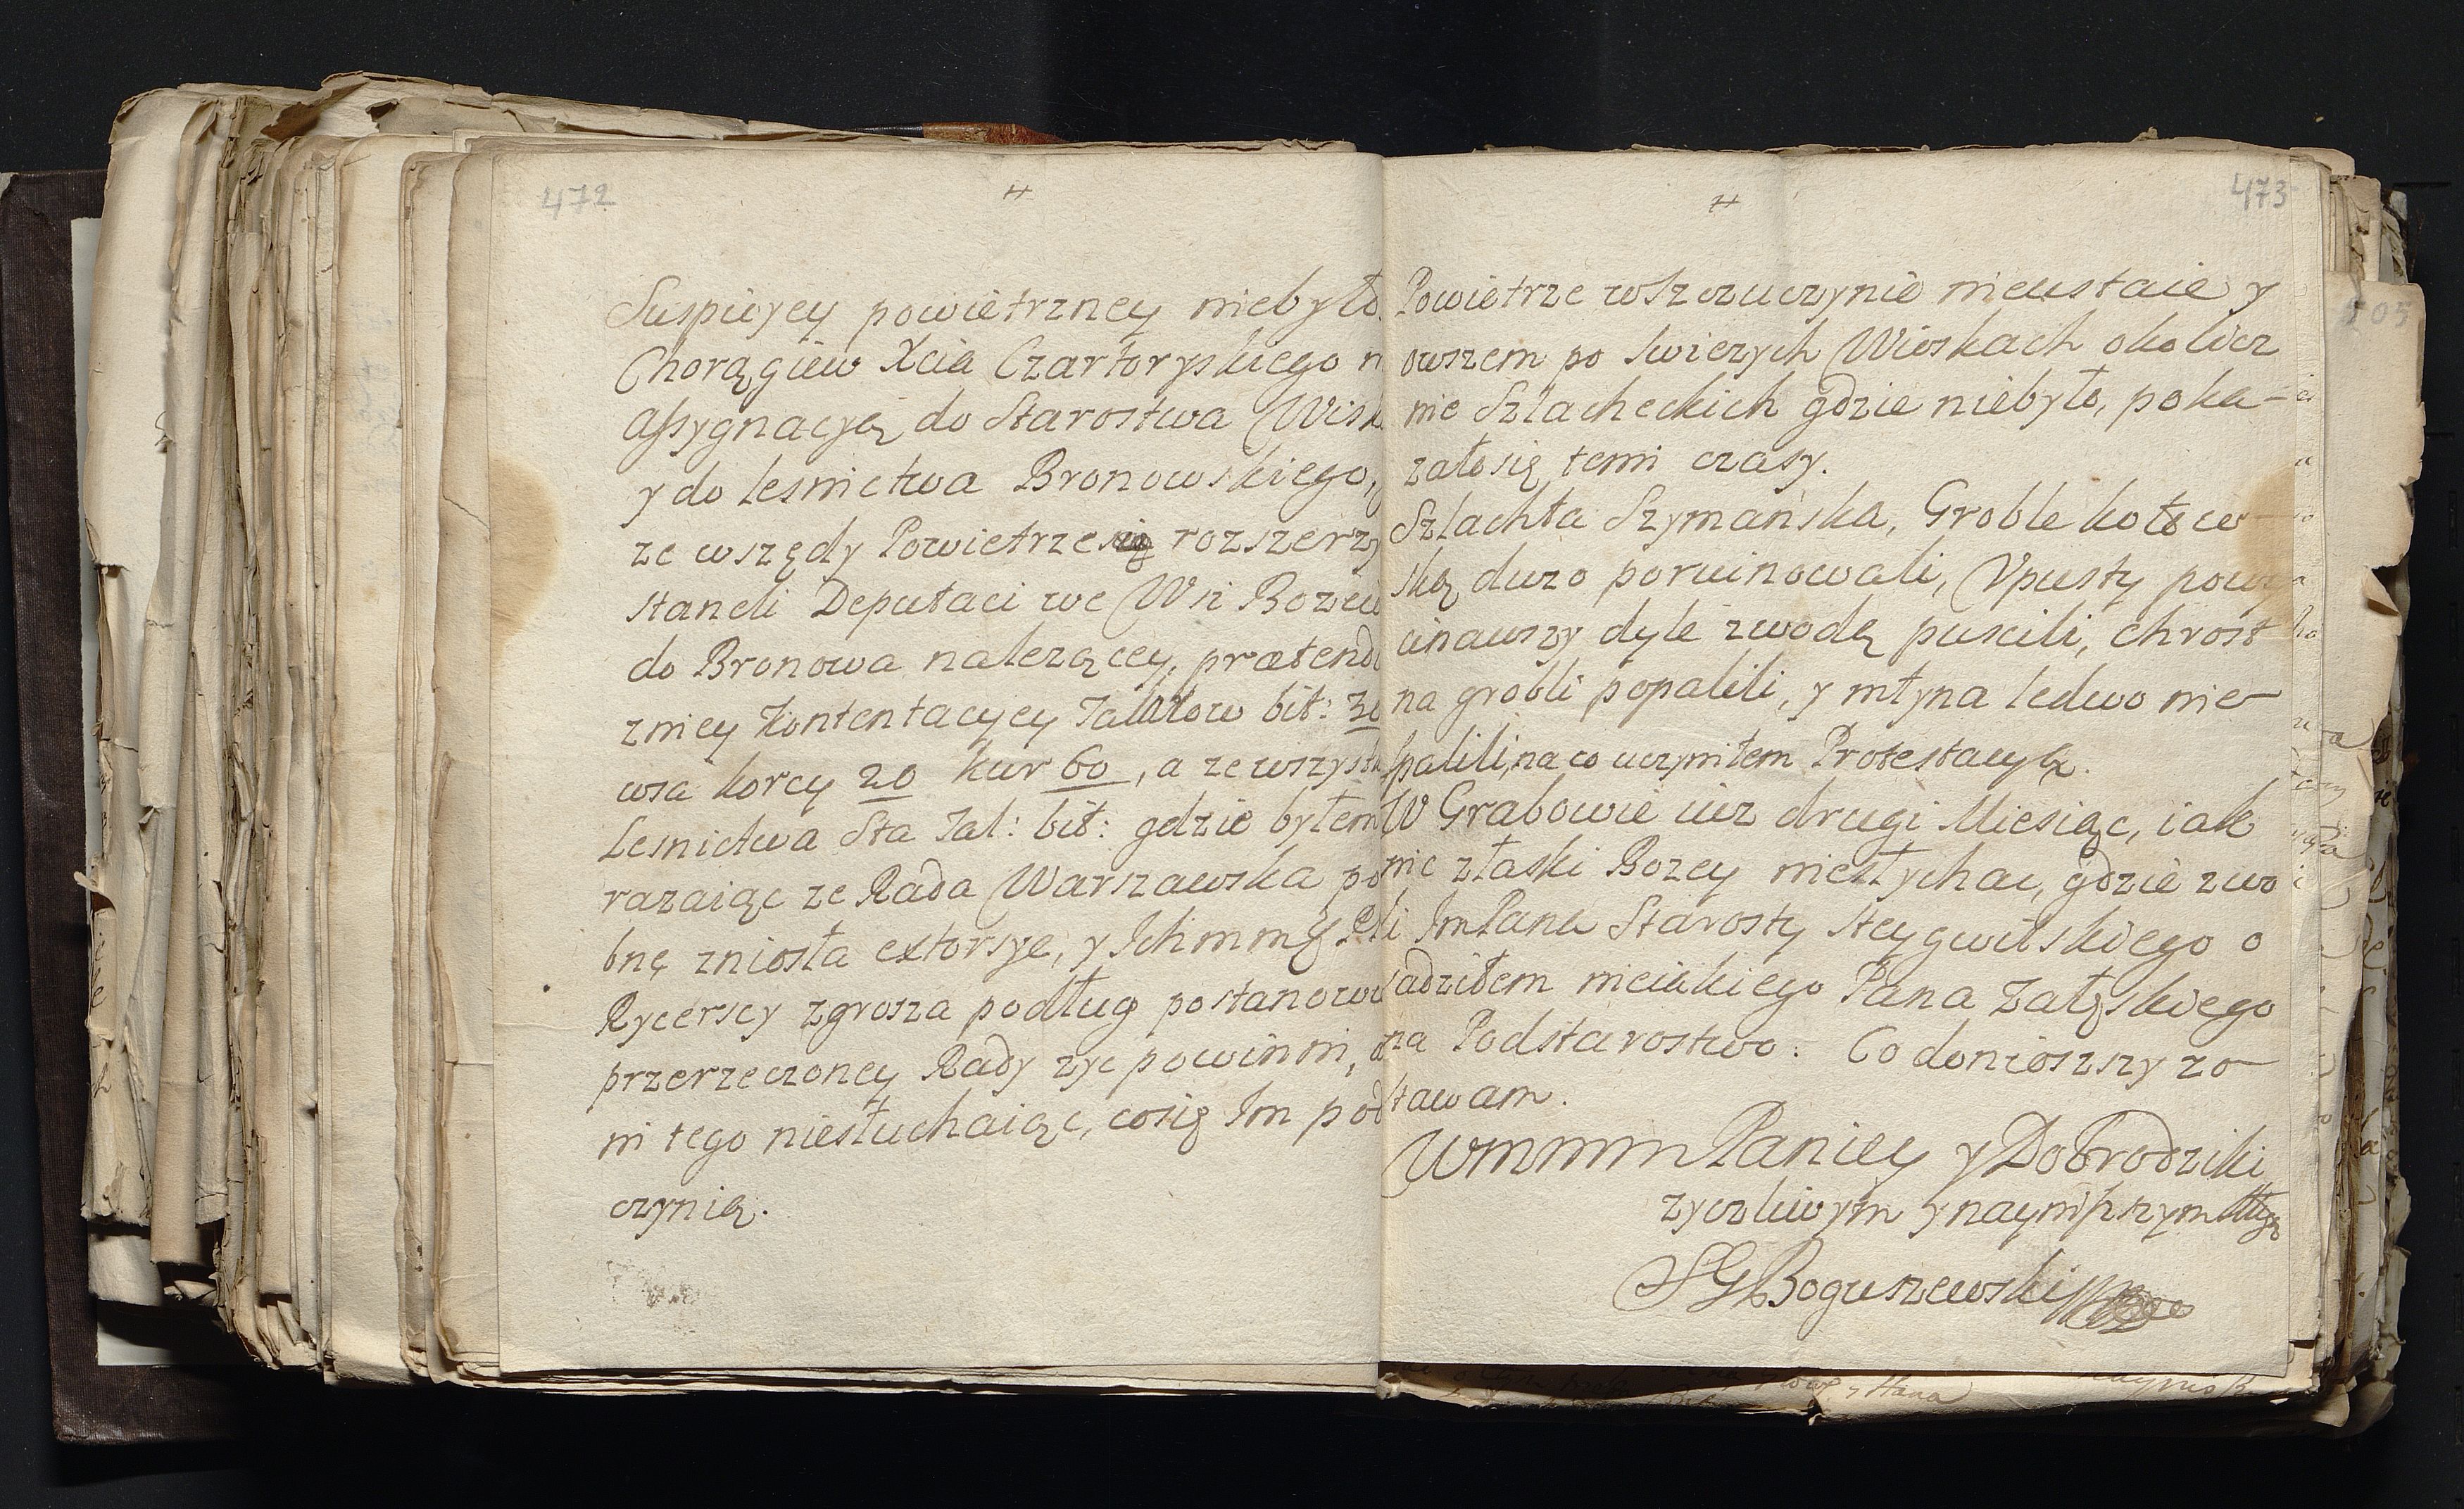 472
Suspicyey powietrzney niebyło
Chorągiew Xcia Czartoryskiego
assygnacyą do Starostwa Wisk
y do lesnictwa Bronowskiego,
ze wszędy Powietrze się rozszerz
staneli Deputaci we Wsi
do Bronowa nalezącey, prætend
zniey Kontentacyey Talarow bit: 30
wsa korcy 20 kur 60, a ze wszystk
Lesnictwa Sta Tal: bit: gdzie byłem
razaiąc ze Rada Warszawska po
bnę zniosła extorsye, y Ichmm
Rycerscy zgrosza podług postanowi
przerzeczoney Rady zyc powinni,
ni tego niesłuchaiąc, cosię Im pod
czynią.
473
Powietrze wSzczuczynie nieustaie y
owszem po swiezych Wioskach okolicz
nie Szlacheckich gdzie niebyło, poka-
załosię temi czasy.
Szlachta Szymańska, Groble kołow-
ską duzo poruinowali, Vpusty powy
cinawszy dyle zwodą puscili, chrost
na grobli popalili, y młyna ledwo nie-
spalili, na co uczyniłem Protestacyą.
W Grabowie iuz drugi Miesiąc, iak
nic złaski Bozey niesłychac, gdzie zwo
li ImPana Starosty Steygwilskiego o
sadziłem nieiakiego Pana Załęskiego
na Podstarostwo. Co doniosszy zo-
stawam.
Wmmm Paniey y Dobrodziki
zyczliwym y naynisszym Sługą
SGBoguszewski